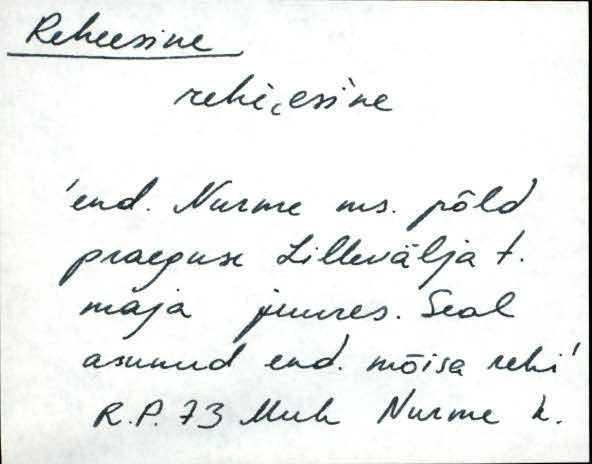 Reheesine
rehi,esine
'end. Nurme ms. põld
praeguse Lillevälja t.
maja juures. Seal
asunud end. mõisa rehi'
R.P. 73 Muh Nurme k.